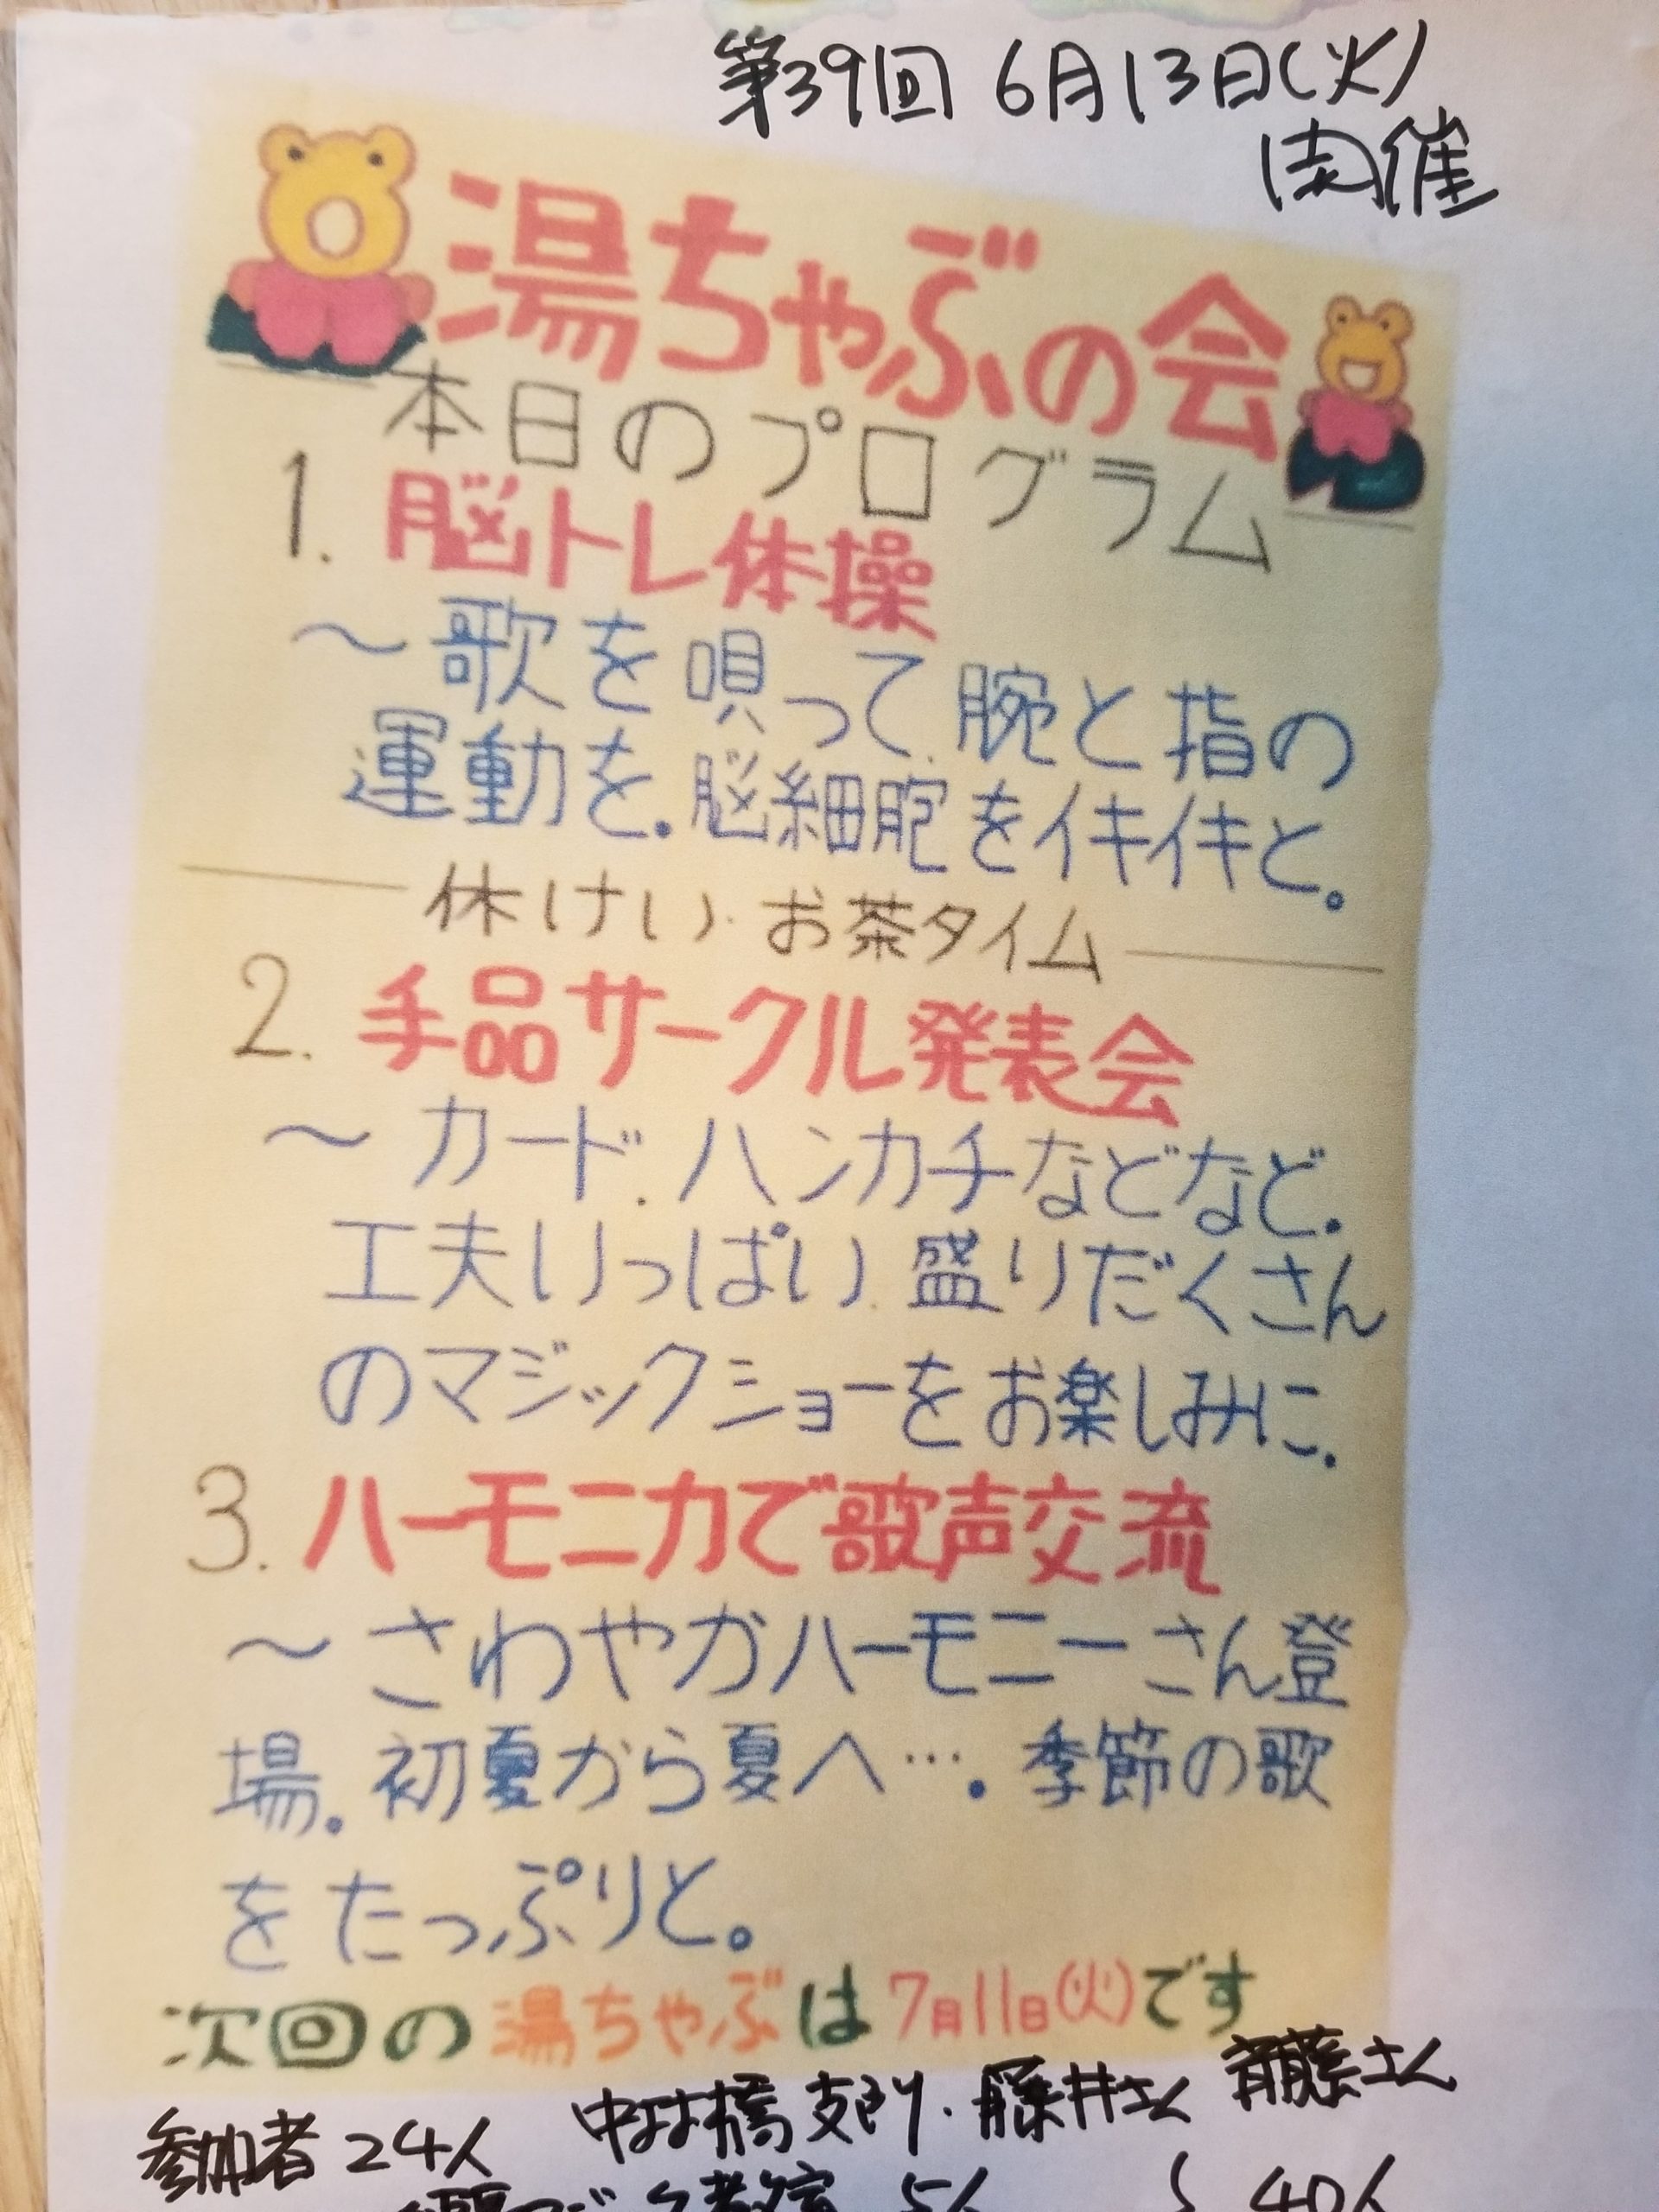 第39回 6月13日(火)
開催
湯ちゃぶの会
本日のプログラム
1. 脳トレ体操
～歌を唄って、腕と指の
運動を。脳細胞をイキイキと。
休けい・お茶タイム
2. 手品サークル発表会
～カード、ハンカチなどなど。
工夫いっぱい、盛りだくさん
のマジックショーをお楽しみに。
3. ハーモニカで歌声交流
～さわやかハーモニーさん登
場。初夏から夏へ…。季節の歌
をたっぷりと。
次回の湯ちゃぶは7月11日(火)です
参加者 24人 中村橋支所・藤井さん 斉藤さん
5人 40人